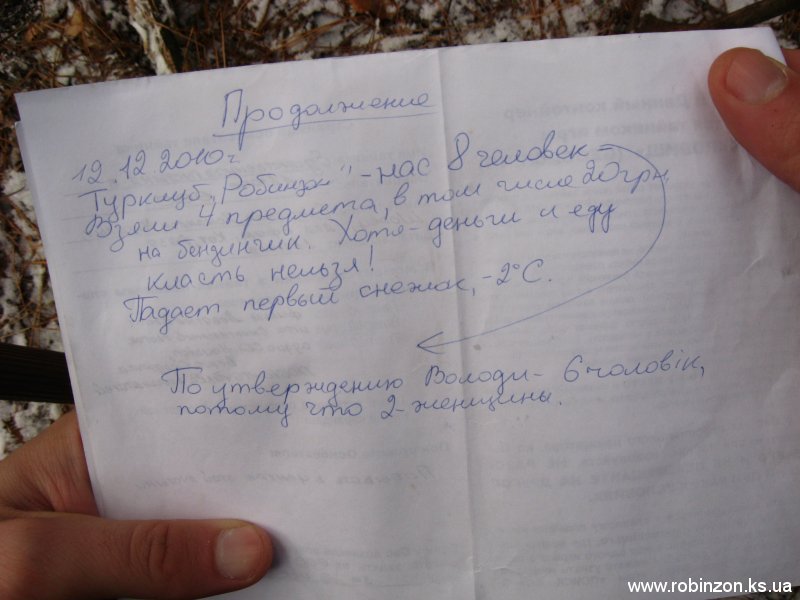 Продолжение
12.12.2010г
Турклуб „Робинзон" - нас 8 человек -
Взяли 4 предмета, в том числе 20 грн.
на бензинчик. Хотя - деньги и еду
класть нельзя!
Падает первый снежок, -2°С.
По утверждению Володи - 6 чоловік,
потому что 2 - женщины.
www.robinzon.ks.ua